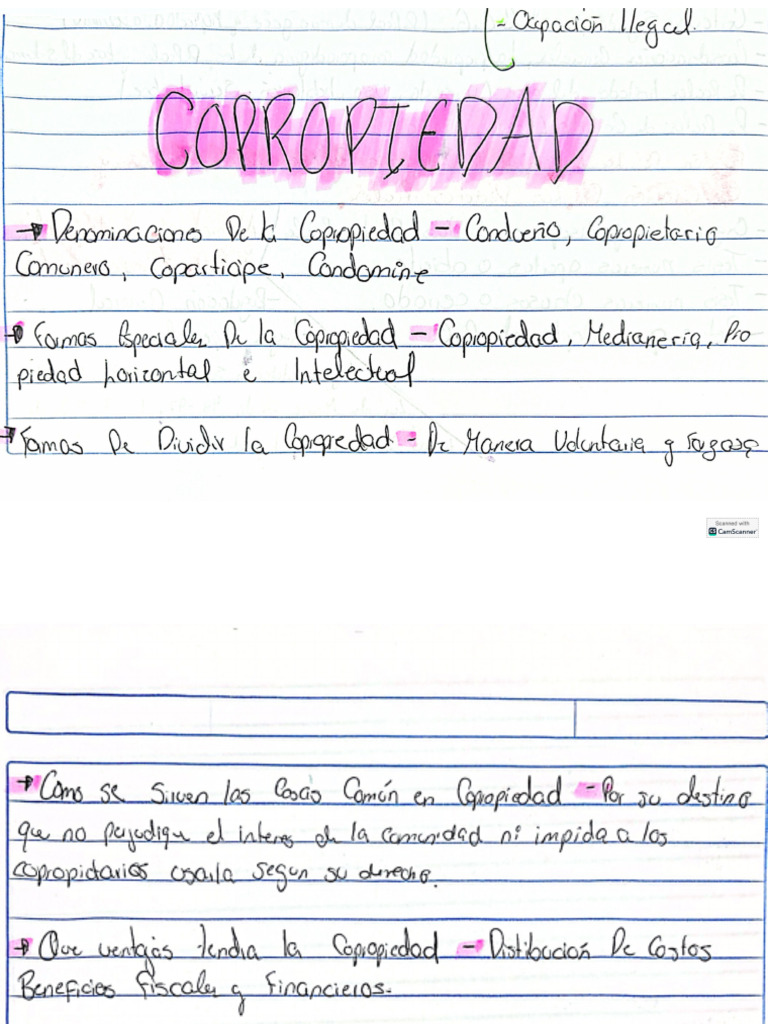 - Ocupación Ilegal.
COPROPIEDAD
→ Denominaciones De la Copropiedad - Condueño, Copropietario
Comunero, Coparticipe, Condomine
→ Formas Especiales De la Copropiedad - Copropiedad, Medianeria, Pro
piedad horizontal e Intelectual
→ Formas De Dividir la Copropiedad - De Manera Voluntaria y
Scanned with
CamScanner
→ Como se sirven las Cosas Común en Copropiedad - Por su destino
que no perjudique el interes de la comunidad ni impida a los
copropietarios usarla segun su derecho.
→ Que ventajas tendria la Copropiedad - Distribución De Costos
Beneficios fiscales y financieros.